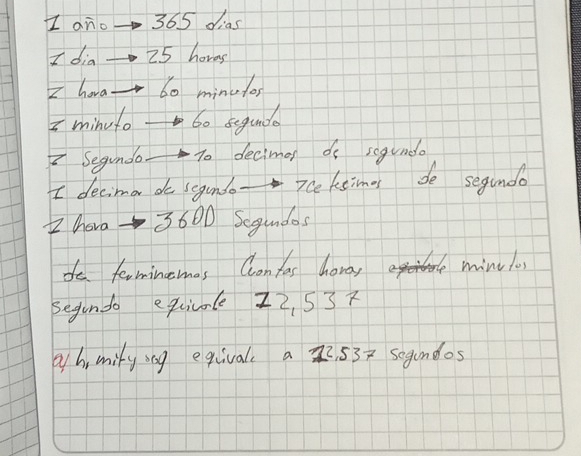 1 año → 365 dias
1 dia → 25 horas
1 hora → 60 minutos
1 minuto → 60 segundo
1 Segundo → 10 decimas de segundo
1 decima de segundo → de segundo
1 hora → 3600 Segundos
determinemos Cuontas horas minutos
segundo equivale 12,537
a) h, mit y seg equivale a 12.537 segundos